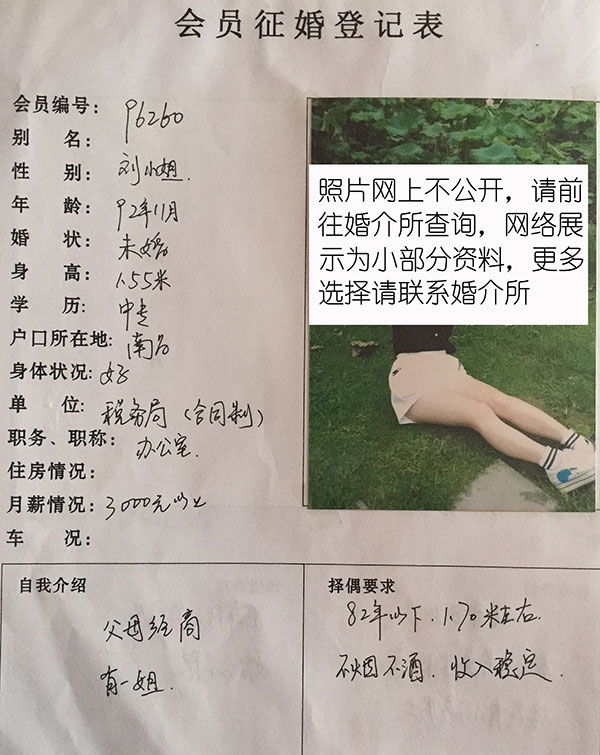 会员征婚登记表
会员编号: 96260
别 名:
性 别: 刘小姐.
年 龄: 92年11月
婚 状: 未婚
身 高: 1.55米
学 历: 中专
户口所在地: 南昌
身体状况: 好
单 位: 税务局(合同制)
职务、职称: 办公室.
住房情况:
月薪情况: 3000元以上
车 况:
照片网上不公开，请前
往婚介所查询，网络展
示为小部分资料，更多
选择请联系婚介所
自我介绍
父母经商
有一姐.
择偶要求
82年以下. 1.70米左右.
不烟不酒. 收入稳定.